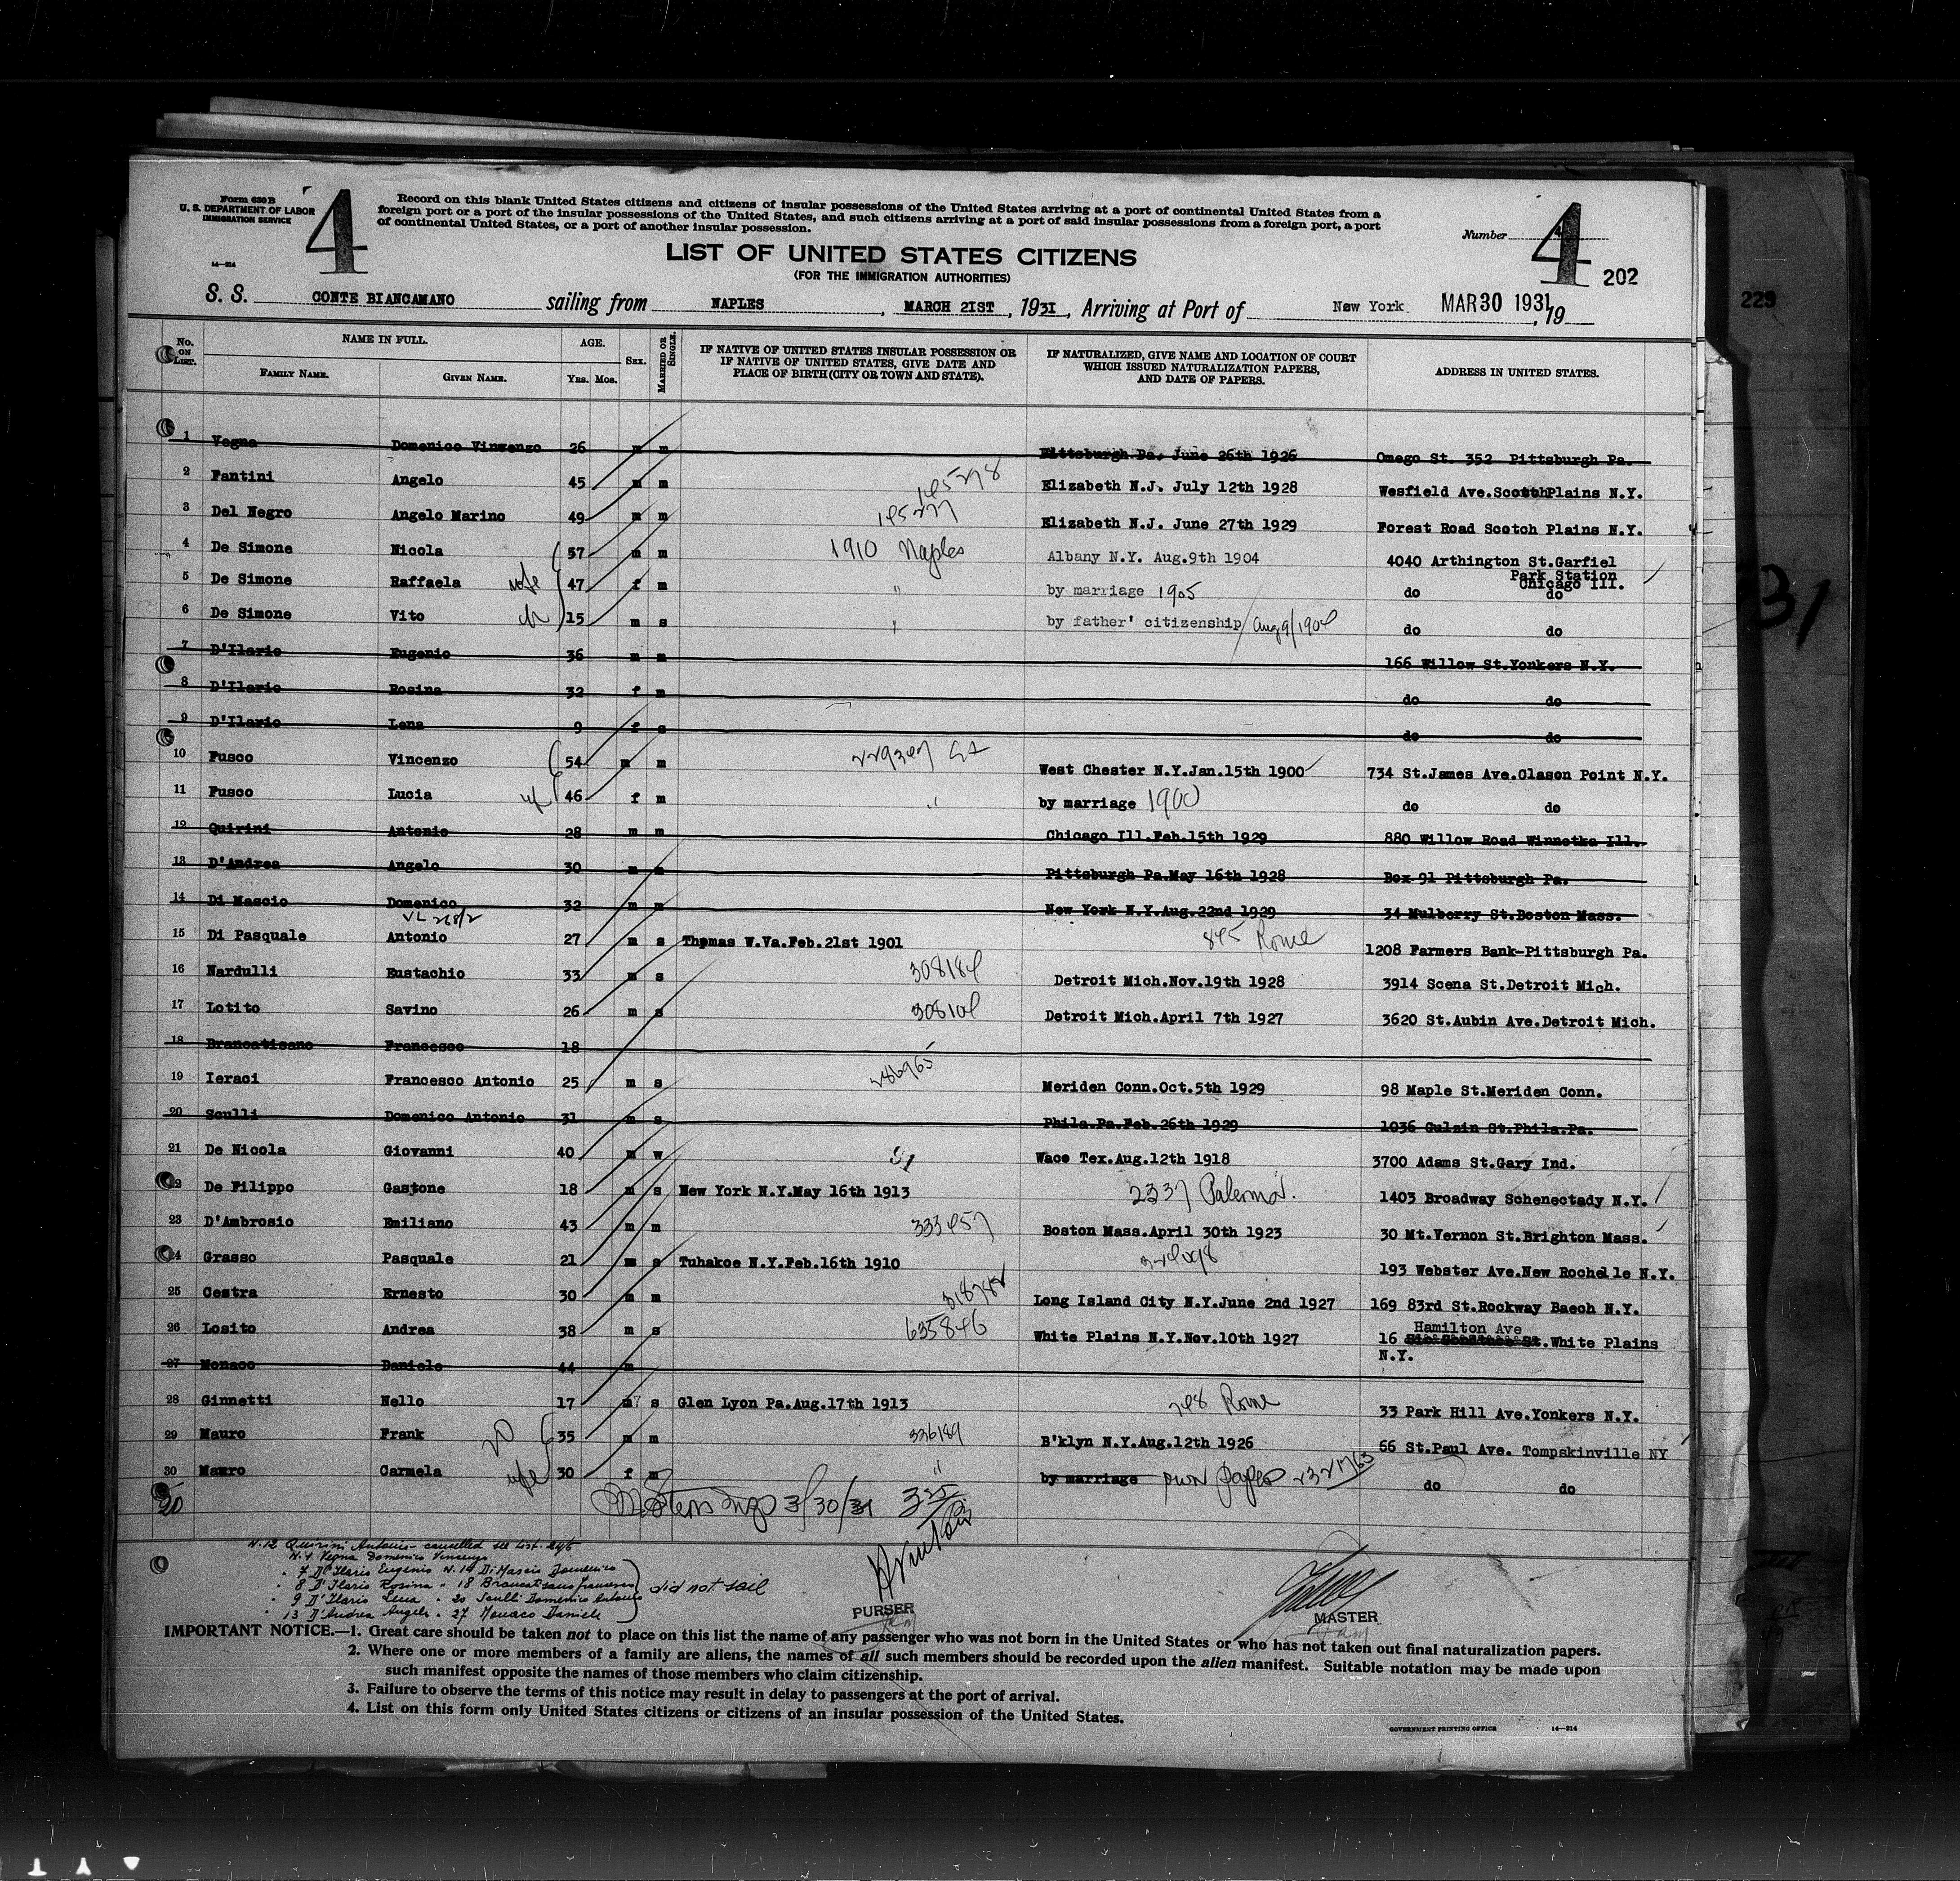 Form 630 B
U. S. DEPARTMENT OF LABOR
IMMIGRATION SERVICE
14—214
4
Record on this blank United States citizens and citizens of insular possessions of the United States arriving at a port of continental United States from a
foreign port or a port of the insular possessions of the United States, and such citizens arriving at a port of said insular possessions from a foreign port, a port
of continental United States, or a port of another insular possession.
Number 4
202
LIST OF UNITED STATES CITIZENS
(FOR THE IMMIGRATION AUTHORITIES)
S. S. CONTE BIANCAMANO sailing from NAPLES, MARCH 21ST, 1931, Arriving at Port of New York MAR 30 1931, 19
229
No. ON LIST. NAME IN FULL. FAMILY NAME. GIVEN NAME. AGE. YRS. MOS. SEX. MARRIED OR SINGLE. IF NATIVE OF UNITED STATES INSULAR POSSESSION OR IF NATIVE OF UNITED STATES, GIVE DATE AND PLACE OF BIRTH (CITY OR TOWN AND STATE). IF NATURALIZED, GIVE NAME AND LOCATION OF COURT WHICH ISSUED NATURALIZATION PAPERS, AND DATE OF PAPERS. ADDRESS IN UNITED STATES.
1 Vegna Domenico Vincenzo 26 m m Pittsburgh Pa. June 26th 1926 Omego St. 352 Pittsburgh Pa.
2 Fantini Angelo 45 m m 145278 Elizabeth N.J. July 12th 1928 Wesfield Ave.Scotch Plains N.Y.
3 Del Negro Angelo Marino 49 m m 145277 Elizabeth N.J. June 27th 1929 Forest Road Scotch Plains N.Y.
4 De Simone Nicola 57 m m 1910 Naples Albany N.Y. Aug.9th 1904 4040 Arthington St.Garfiel
Park Station
Chicago Ill.
5 De Simone Raffaela wife 47 f m " by marriage 1905 do do
6 De Simone Vito ch 15 m s " by father' citizenship/Aug 9/1904 do do
7 D'Ilario Eugenio 36 m m 166 Willow St.Yonkers N.Y.
8 D'Ilario Rosina 32 f m do do
9 D'Ilario Lena 9 f s do do
10 Fusco Vincenzo 54 m m West Chester N.Y.Jan.15th 1900 734 St.James Ave.Clason Point N.Y.
11 Fusco Lucia wf 46 f m " by marriage 1900 do do
12 Quirini Antonio 28 m m Chicago Ill.Feb.15th 1929 880 Willow Road Winnetka Ill.
13 D'Andrea Angelo 30 m m Pittsburgh Pa.May 16th 1928 Box 91 Pittsburgh Pa.
14 Di Mascio Domenico 32 m m New York N.Y.Aug.22nd 1929 34 Mulberry St.Boston Mass.
15 Di Pasquale Antonio 27 m s Thomas W.Va.Feb.21st 1901 845 Rome 1208 Farmers Bank-Pittsburgh Pa.
16 Nardulli Eustachio 33 m s 308184 Detroit Mich.Nov.19th 1928 3914 Scena St.Detroit Mich.
17 Lotito Savino 26 m s 308104 Detroit Mich.April 7th 1927 3620 St.Aubin Ave.Detroit Mich.
18 Brancatisano Francesco 18
19 Ieraci Francesco Antonio 25 m s 286965 Meriden Conn.Oct.5th 1929 98 Maple St.Meriden Conn.
20 Sculli Domenico Antonio 31 m s Phila.Pa.Feb.26th 1929 1036 Gulsin St.Phila.Pa.
21 De Nicola Giovanni 40 m w Waco Tex.Aug.12th 1918 3700 Adams St.Gary Ind.
22 De Filippo Gastone 18 m s New York N.Y.May 16th 1913 2337 Palermo. 1403 Broadway Schenectady N.Y.
23 D'Ambrosio Emiliano 43 m m 333457 Boston Mass.April 30th 1923 30 Mt.Vernon St.Brighton Mass.
24 Grasso Pasquale 21 m s Tuhakoe N.Y.Feb.16th 1910 193 Webster Ave.New Rochelle N.Y.
25 Cestra Ernesto 30 m m Long Island City N.Y.June 2nd 1927 169 83rd St.Rockway Baech N.Y.
26 Losito Andrea 38 m s 635846 White Plains N.Y.Nov.10th 1927 Hamilton Ave
16 St.White Plains
N.Y.
27 Monaco Daniele 44 m
28 Ginnetti Nello 17 m s Glen Lyon Pa.Aug.17th 1913 748 Rome 33 Park Hill Ave.Yonkers N.Y.
29 Mauro Frank 35 m m 336189 B'klyn N.Y.Aug.12th 1926 66 St.Paul Ave. Tompskinville NY
30 Mauro Carmela wife 30 f m " by marriage own papers do do
20
3/30/31
N.12 Quirini Antonio - cancelled see List
N.1 Vegna Domenico Vincenzo
" 7 D'Ilario Eugenio N.14 Di Mascio Domenico
" 8 D'Ilario Rosina " 18 Brancatisano Francesco
" 9 D'Ilario Lena " 20 Sculli Domenico Antonio
" 13 D'Andrea Angelo " 27 Monaco Daniele
did not sail
PURSER
MASTER
IMPORTANT NOTICE.—1. Great care should be taken not to place on this list the name of any passenger who was not born in the United States or who has not taken out final naturalization papers.
2. Where one or more members of a family are aliens, the names of all such members should be recorded upon the alien manifest. Suitable notation may be made upon
such manifest opposite the names of those members who claim citizenship.
3. Failure to observe the terms of this notice may result in delay to passengers at the port of arrival.
4. List on this form only United States citizens or citizens of an insular possession of the United States.
GOVERNMENT PRINTING OFFICE 14—214